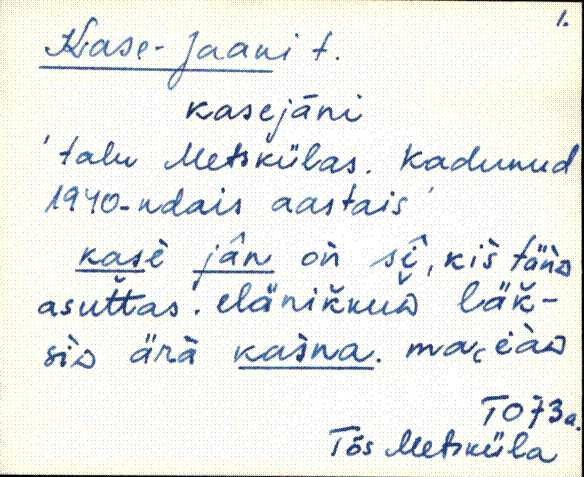 1.
Kase-Jaani t.
kasejāni
'talu Metskülas. Kadunud
1940-ndais aastais'
kasè jân on̆ sî, kis̆ tän̆ɒ
asut̆tas. elänik̆kuɒ̀ läk̆-
siɒ̀ ärä̀ kas̆na.
T073a.
Tös Metsküla